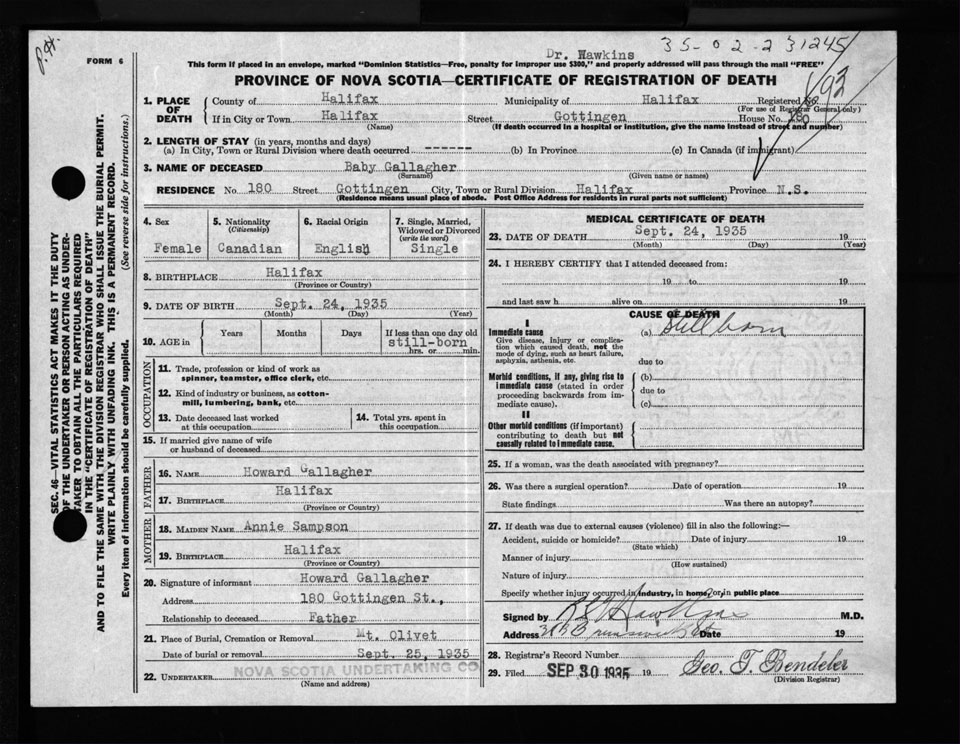 P.H.
35-02-231245
FORM 6
Dr. Hawkins
This form if placed in an envelope, marked "Dominion Statistics—Free, penalty for improper use $300," and properly addressed will pass through the mail "FREE"
PROVINCE OF NOVA SCOTIA—CERTIFICATE OF REGISTRATION OF DEATH
93
SEC. 46—VITAL STATISTICS ACT MAKES IT THE DUTY
OF THE UNDERTAKER OR PERSON ACTING AS UNDER-
TAKER TO OBTAIN ALL THE PARTICULARS REQUIRED
IN THE "CERTIFICATE OF REGISTRATION OF DEATH"
AND TO FILE THE SAME WITH THE DIVISION REGISTRAR WHO SHALL ISSUE THE BURIAL PERMIT.
WRITE PLAINLY WITH UNFADING INK. THIS IS A PERMANENT RECORD.
Every item of information should be carefully supplied. (See reverse side for instructions.)
1. PLACE OF DEATH
County of Halifax Municipality of Halifax Registered No.
(For use of Registrar General only)
If in City or Town Halifax Street Gottingen House No. 180
(Name) (If death occurred in a hospital or institution, give the name instead of street and number)
2. LENGTH OF STAY (in years, months and days)
(a) In City, Town or Rural Division where death occurred ------- (b) In Province (c) In Canada (if immigrant)
3. NAME OF DECEASED Baby Gallagher
(Surname) (Given name or names)
RESIDENCE No. 180 Street Gottingen City, Town or Rural Division Halifax Province N.S.
(Residence means usual place of abode. Post Office Address for residents in rural parts not sufficient)
4. Sex 5. Nationality (Citizenship) 6. Racial Origin 7. Single, Married, Widowed or Divorced (write the word)
Female Canadian English Single
8. BIRTHPLACE Halifax
(Province or Country)
9. DATE OF BIRTH Sept. 24, 1935
(Month) (Day) (Year)
10. AGE in Years Months Days If less than one day old
still-born
hrs. or min.
OCCUPATION
11. Trade, profession or kind of work as
spinner, teamster, office clerk, etc.
12. Kind of industry or business, as cotton-
mill, lumbering, bank, etc.
13. Date deceased last worked
at this occupation
14. Total yrs. spent in
this occupation
15. If married give name of wife
or husband of deceased
FATHER
16. NAME Howard Gallagher
17. BIRTHPLACE Halifax
(Province or Country)
MOTHER
18. MAIDEN NAME Annie Sampson
19. BIRTHPLACE Halifax
(Province or Country)
20. Signature of informant Howard Gallagher
Address 180 Gottingen St.,
Relationship to deceased Father
21. Place of Burial, Cremation or Removal Mt. Olivet
Date of burial or removal Sept. 25, 1935
22. UNDERTAKER NOVA SCOTIA UNDERTAKING CO
(Name and address)
MEDICAL CERTIFICATE OF DEATH
23. DATE OF DEATH Sept. 24, 1935 19
(Month) (Day) (Year)
24. I HEREBY CERTIFY that I attended deceased from:
19 to 19
and last saw h alive on 19
CAUSE OF DEATH
I
Immediate cause
Give disease, injury or complica-
tion which caused death, not the
mode of dying, such as heart failure,
asphyxia, asthenia, etc.
(a) Still born
due to
Morbid conditions, if any, giving rise to
immediate cause (stated in order
proceeding backwards from im-
mediate cause).
(b)
due to
(c)
II
Other morbid conditions (if important)
contributing to death but not
causally related to immediate cause.
25. If a woman, was the death associated with pregnancy?
26. Was there a surgical operation? Date of operation 19
State findings Was there an autopsy?
27. If death was due to external causes (violence) fill in also the following:—
Accident, suicide or homicide? Date of injury 19
(State which)
Manner of injury
(How sustained)
Nature of injury
Specify whether injury occurred in industry, in home, or in public place
Signed by Hawkins M.D.
Address Brunswick St Date 19
28. Registrar's Record Number
29. Filed SEP 30 1935 19 Geo. T. Bendeler
(Division Registrar)